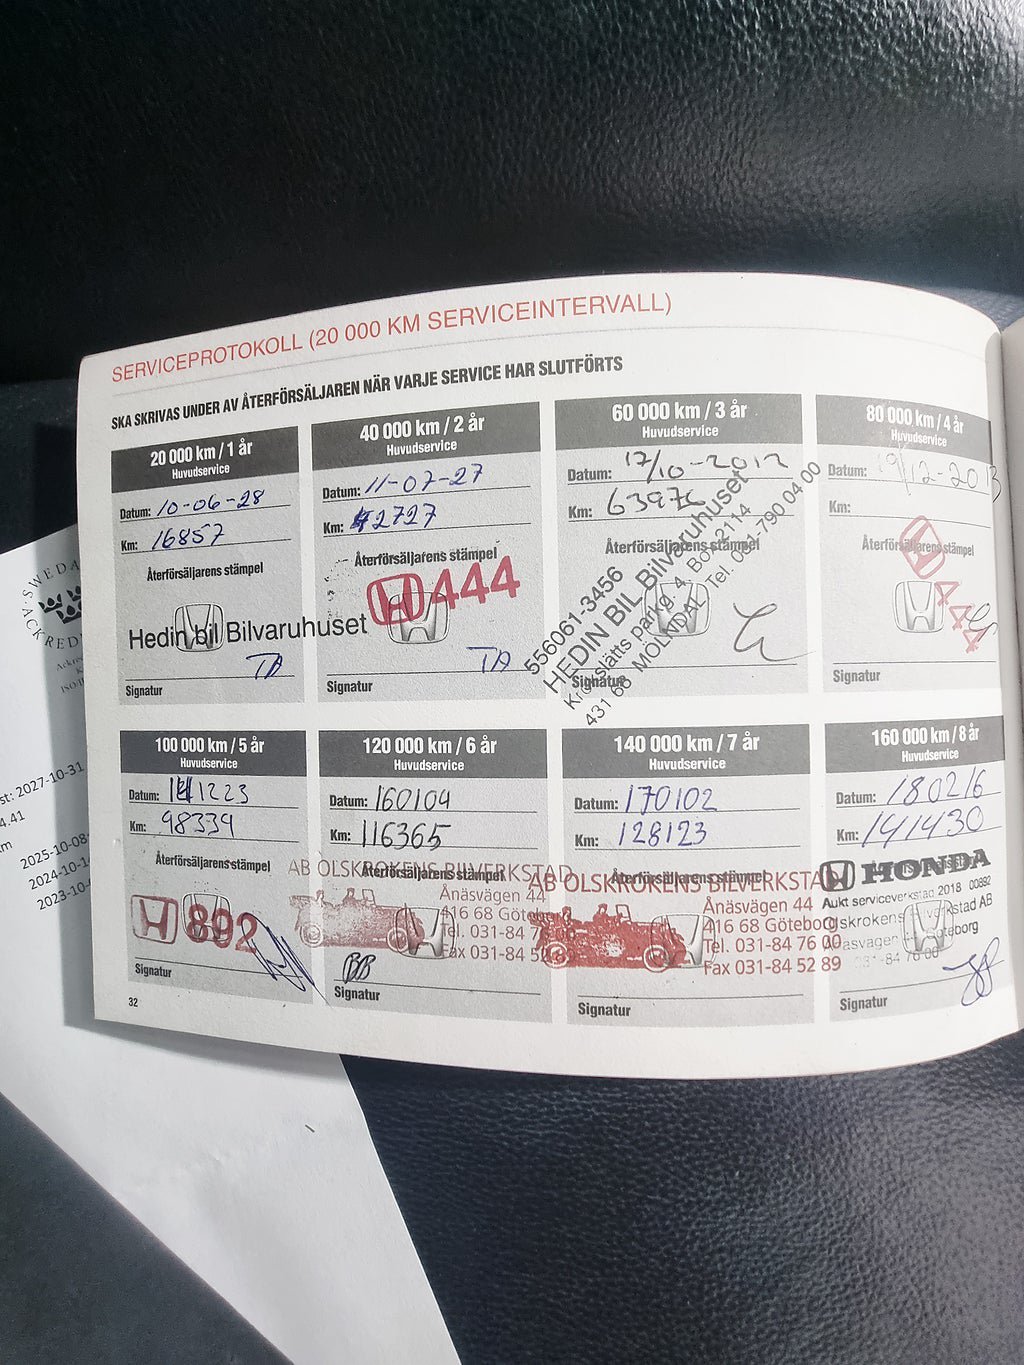 SERVICEPROTOKOLL (20 000 KM SERVICEINTERVALL)
SKA SKRIVAS UNDER AV ÅTERFÖRSÄLJAREN NÄR VARJE SERVICE HAR SLUTFÖRTS
20 000 km / 1 år
Huvudservice
Datum: 10-06-28
Km: 16857
Återförsäljarens stämpel
Hedin bil Bilvaruhuset
TA
Signatur
40 000 km / 2 år
Huvudservice
Datum: 11-07-27
Km: 42727
Återförsäljarens stämpel
444
TA
Signatur
60 000 km / 3 år
Huvudservice
Datum: 17/10-2012
Km: 63976
Återförsäljarens stämpel
556061-3456
HEDIN BIL Bilvaruhuset
parkg. 4, Box 2114
431 68 MÖLNDAL Tel. 031-790 04 00
Signatur
80 000 km / 4 år
Huvudservice
Datum: 19/12-2013
Km:
Återförsäljarens stämpel
444
Signatur
100 000 km / 5 år
Huvudservice
Datum: 141223
Km: 98339
Återförsäljarens stämpel
892
Signatur
120 000 km / 6 år
Huvudservice
Datum: 160104
Km: 116365
Återförsäljarens stämpel
AB OLSKROKENS BILVERKSTAD
Ånäsvägen 44
416 68 Göteb
Tel. 031-84 7
Fax 031-84 52 8
BB
Signatur
140 000 km / 7 år
Huvudservice
Datum: 170102
Km: 128123
Återförsäljarens stämpel
AB OLSKROKENS BILVERKSTAD
Ånäsvägen 44
416 68 Göteborg
Tel. 031-84 76 00
Fax 031-84 52 89
Signatur
160 000 km / 8 år
Huvudservice
Datum: 180216
Km: 141430
HONDA
Aukt serviceverkstad 2018 00892
Olskrokens Bilverkstad AB
Ånäsvägen 44 Göteborg
031-84 76 00
Signatur
32
SWEDA
ACKREDI
st: 2027-10-31
4.41
2025-10-08
2024-10-1
2023-10-